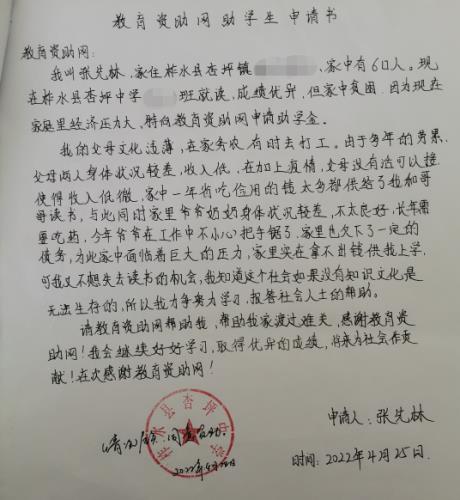 教育资助网助学生申请书
教育资助网：
我叫张先林，家住柞水县杏坪镇，家中有6口人。现
在柞水县杏坪中学班就读，成绩优异，但家中贫困，因为现在
家庭里经济压力大，特向教育资助网申请助学金。
我的父母文化浅薄，在家务农有时去打工。由于多年的劳累，
父母两人身体状况较差，收入低，在加上疫情，父母没有活可以接，
使得收入低微，家中一年省吃俭用的钱大多都供给了我和哥
哥读书，与此同时家里爷爷奶奶身体状况较差，不太良好，长年需
要吃药，今年爷爷在工作中不小心把手锯了，家里也欠下了一定的
债务，为此家中面临着巨大的压力，家里实在拿不出钱供我上学，
可我又不想失去读书的机会，我知道这个社会如果没有知识文化是
无法生存的，所以我力争努力学习，报答社会人士的帮助。
请教育资助网帮助我，帮助我家渡过难关，感谢教育资
助网！我会继续好好学习，取得优异的成绩，将来为社会作贡
献！在次感谢教育资助网！
情况属实
柞水县杏坪中学
申请人：张先林
时间：2022年4月25日.